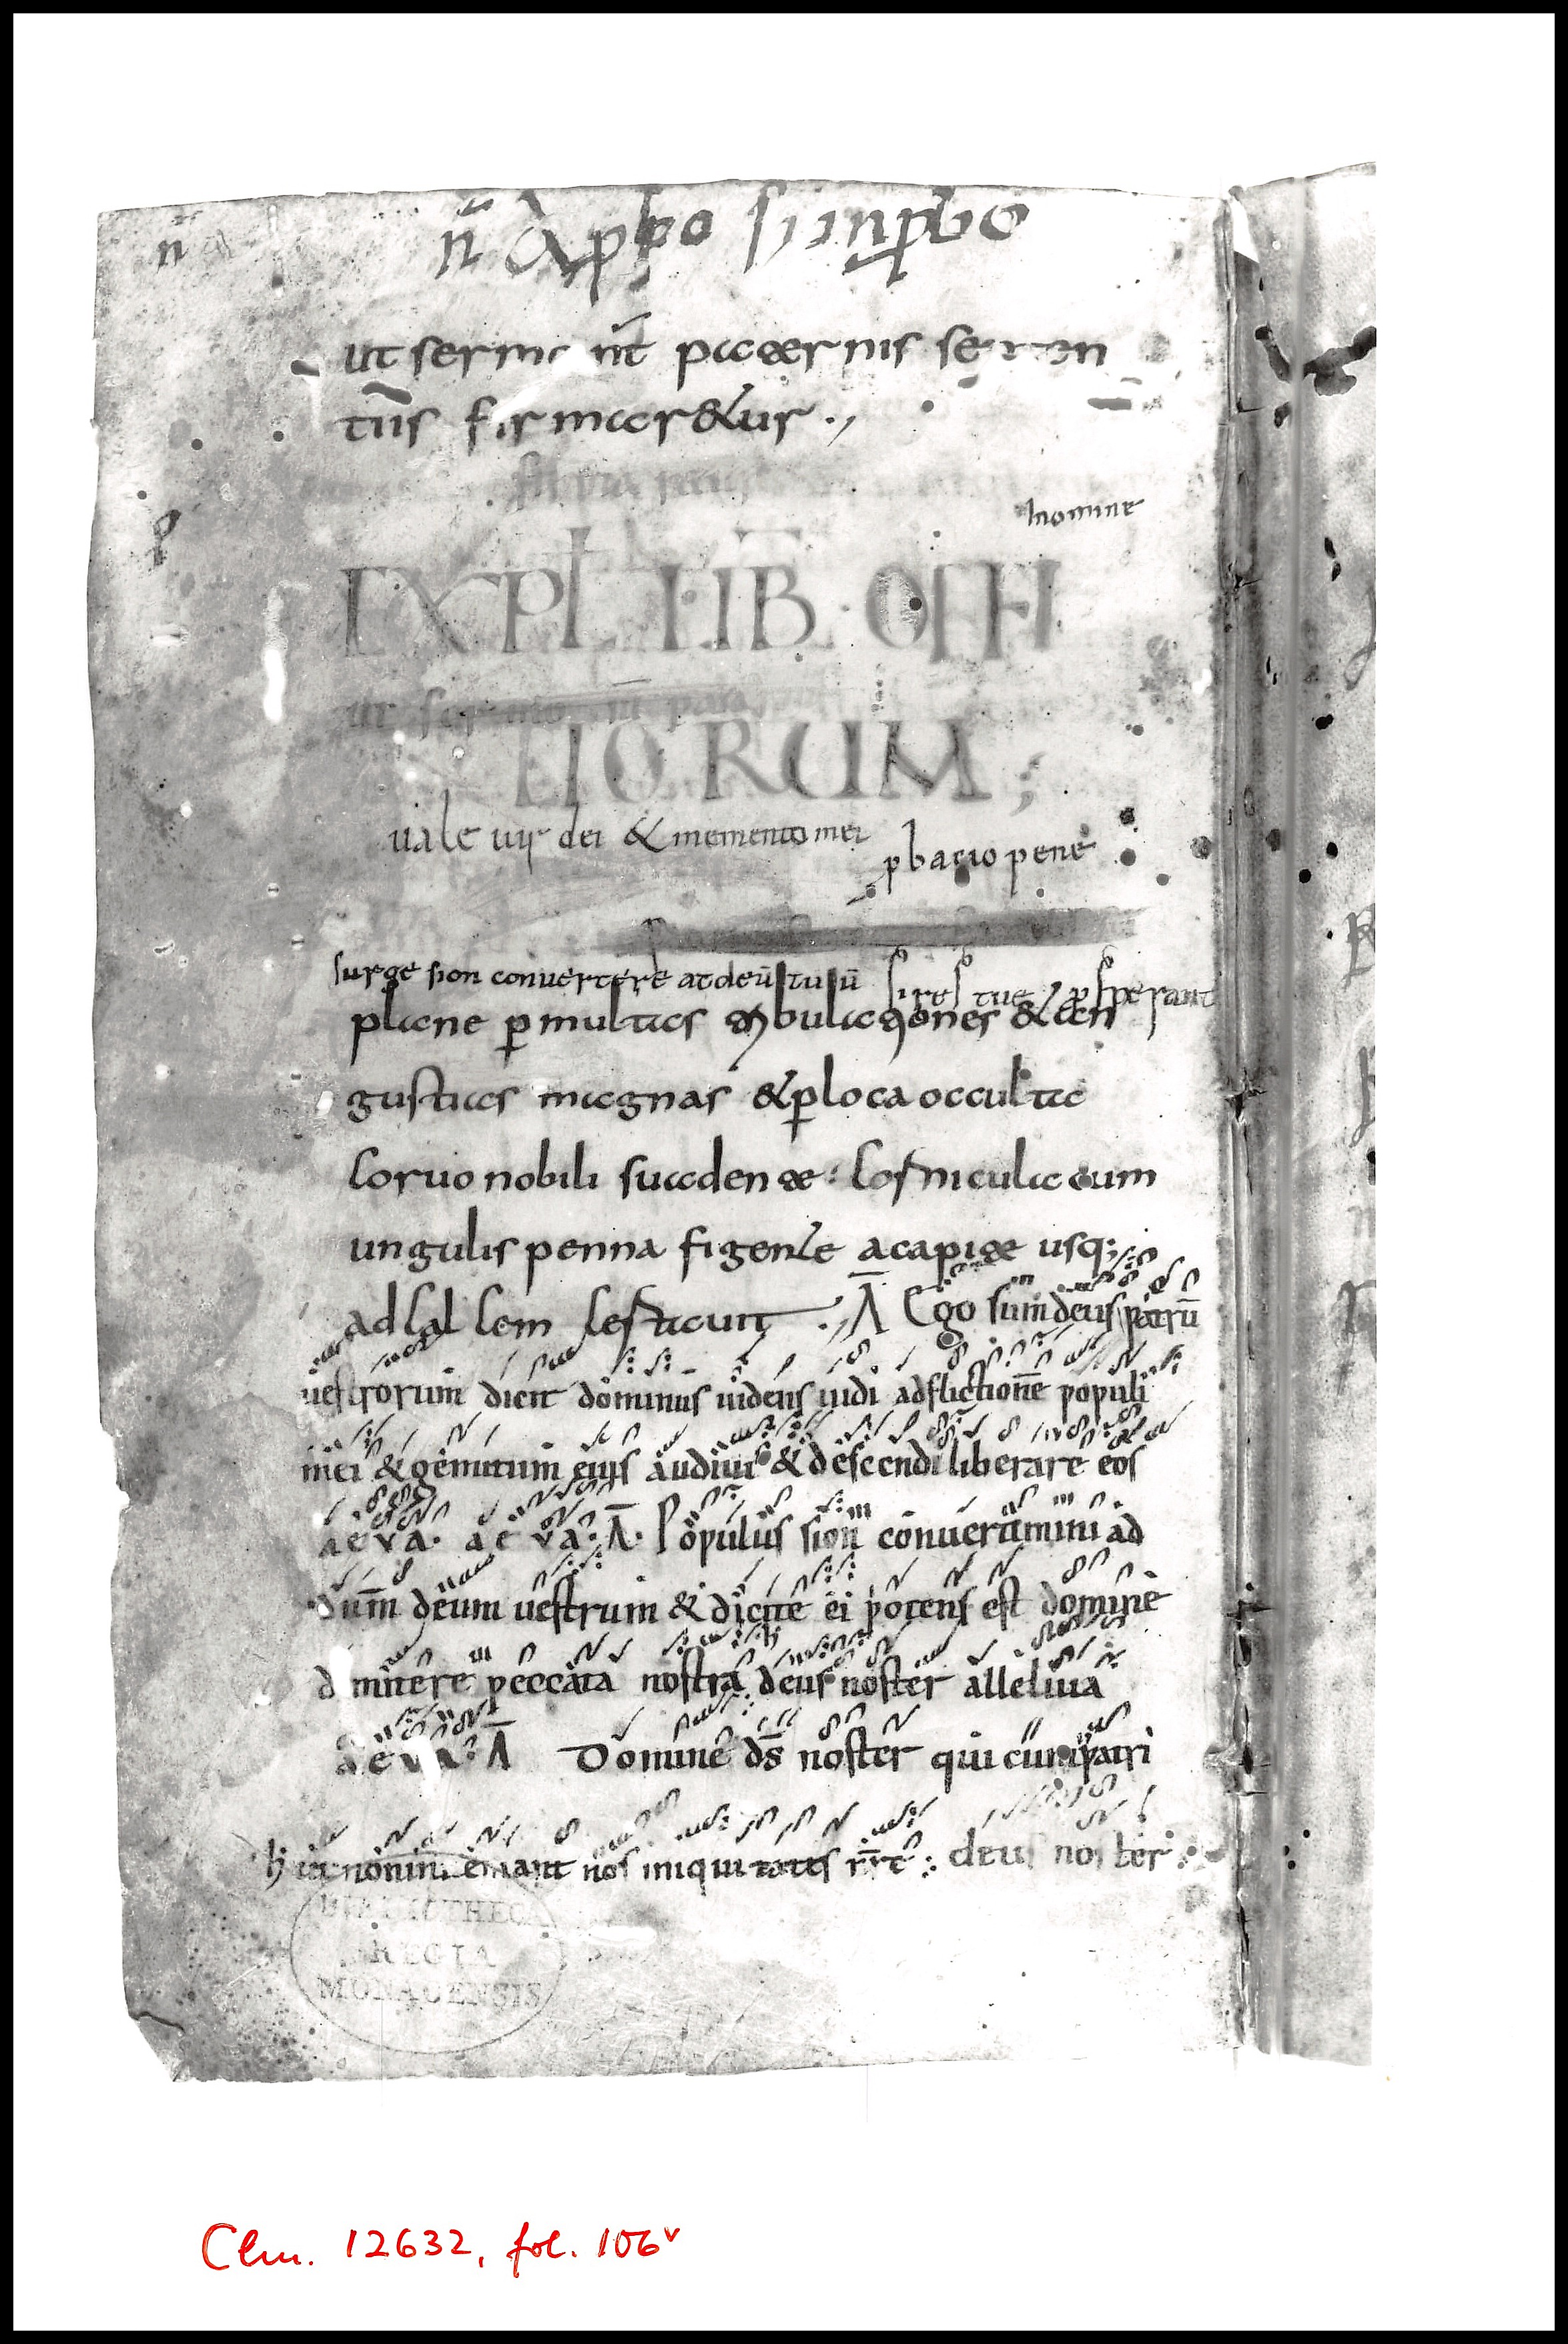 ut sermo nr̄ paternis senten
tiis firmaretur .,
In nomine
EXPL LIB · OFFI
TIORUM ;
uale uir dei & memento mei
ꝓbacio pene
surge sion conuertere at deū tuū si res tue ꝓsperant
plane ꝑ multas ambulationes & an
gustias magnas & ꝑ loca occulta
coruo nobili suadente : cornicula cum
ungulis penna figente a capite usq;
ad calcem .,
Ā Ego sum deus patrū
uestrorum dicit dominus uidens uidi adflictionē populi
mei & gemitum eius audiui & descendi liberare eos
aeva · aeva : Ā · Populus sion conuertimini ad
dum̄ deum uestrum & dicite ei potens est domine
dimittere peccata nostra deus noster alleluia
aeva : Ā Domine ds̄ noster qui cum patri
nos iniquitates nr̄ē : deus noster
BIBLIOTHECA
REGIA
MONACENSIS
Clm. 12632, fol. 106v